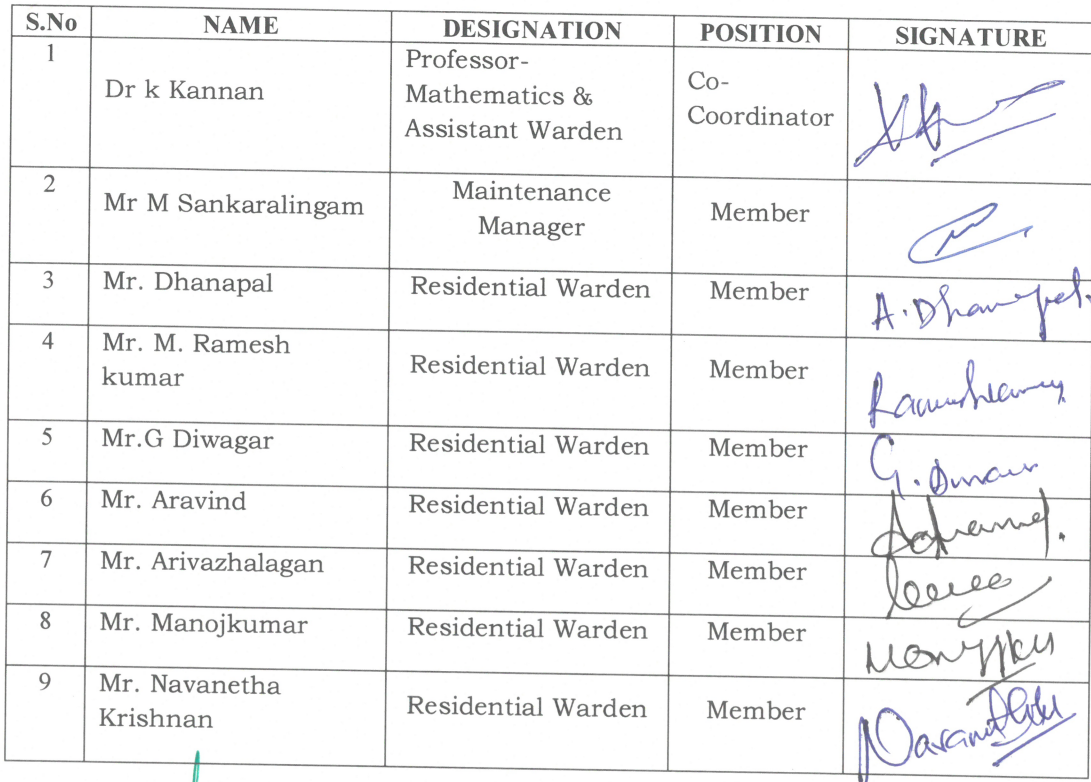 S.No NAME DESIGNATION POSITION SIGNATURE
1 Dr k Kannan Professor- Co-
Mathematics & Coordinator
Assistant Warden
2 Mr M Sankaralingam Maintenance Member
Manager
3 Mr. Dhanapal Residential Warden Member A. Dhanapal.
4 Mr. M. Ramesh Residential Warden Member
kumar
5 Mr.G Diwagar Residential Warden Member
6 Mr. Aravind Residential Warden Member
7 Mr. Arivazhalagan Residential Warden Member
8 Mr. Manojkumar Residential Warden Member
9 Mr. Navanetha Residential Warden Member
Krishnan